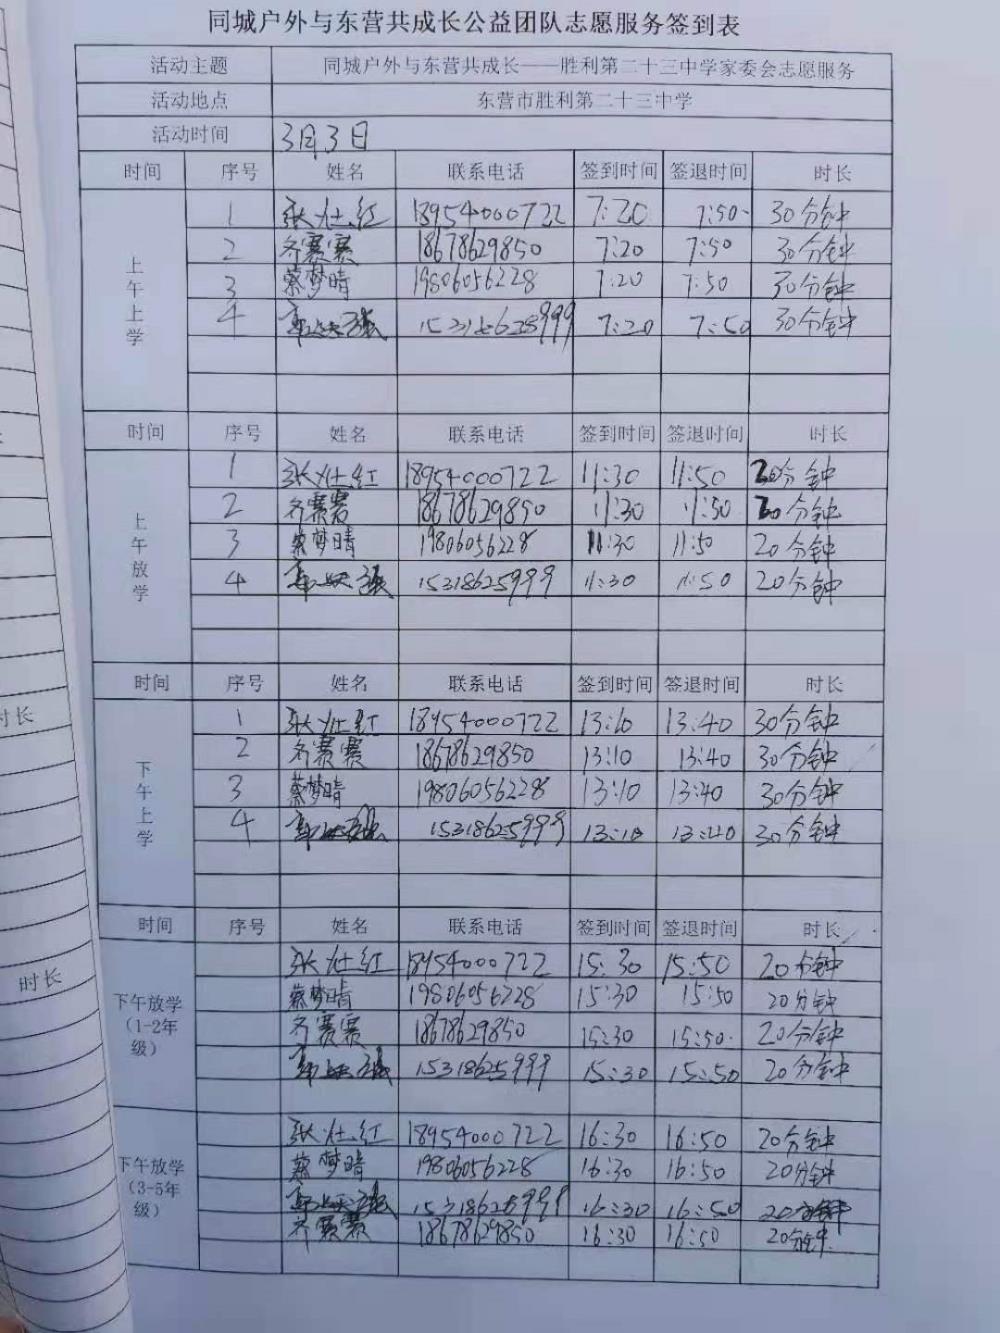 同城户外与东营共成长公益团队志愿服务签到表
活动主题 同城户外与东营共成长——胜利第二十三中学家委会志愿服务
活动地点 东营市胜利第二十三中学
活动时间 3月3日
时间 序号 姓名 联系电话 签到时间 签退时间 时长
上午上学
1 张灶红 18954000722 7:20 7:50 30分钟
2 齐赛赛 18678629850 7:20 7:50 30分钟
3 蔡梦晴 19806056228 7:20 7:50 30分钟
4 7:20 7:50 30分钟
时间 序号 姓名 联系电话 签到时间 签退时间 时长
上午放学
1 张灶红 18954000722 11:30 11:50 20分钟
2 齐赛赛 18678629850 11:30 11:50 20分钟
3 蔡梦晴 19806056228 11:30 11:50 20分钟
4 15318625999 11:30 11:50 20分钟
时间 序号 姓名 联系电话 签到时间 签退时间 时长
下午上学
1 张灶红 18954000722 13:10 13:40 30分钟
2 齐赛赛 18678629850 13:10 13:40 30分钟
3 蔡梦晴 19806056228 13:10 13:40 30分钟
4 15318625999 13:10 13:40 30分钟
时间 序号 姓名 联系电话 签到时间 签退时间 时长
下午放学
(1-2年
级)
张灶红 18954000722 15:30 15:50 20分钟
蔡梦晴 19806056228 15:30 15:50 20分钟
齐赛赛 18678629850 15:30 15:50 20分钟
15318625999 15:30 15:50 20分钟
下午放学
(3-5年
级)
张灶红 18954000722 16:30 16:50 20分钟
蔡梦晴 19806056228 16:30 16:50 20分钟
15318625999 16:30 16:50 20分钟
齐赛赛 18678629850 16:30 16:50 20分钟
时长
时长